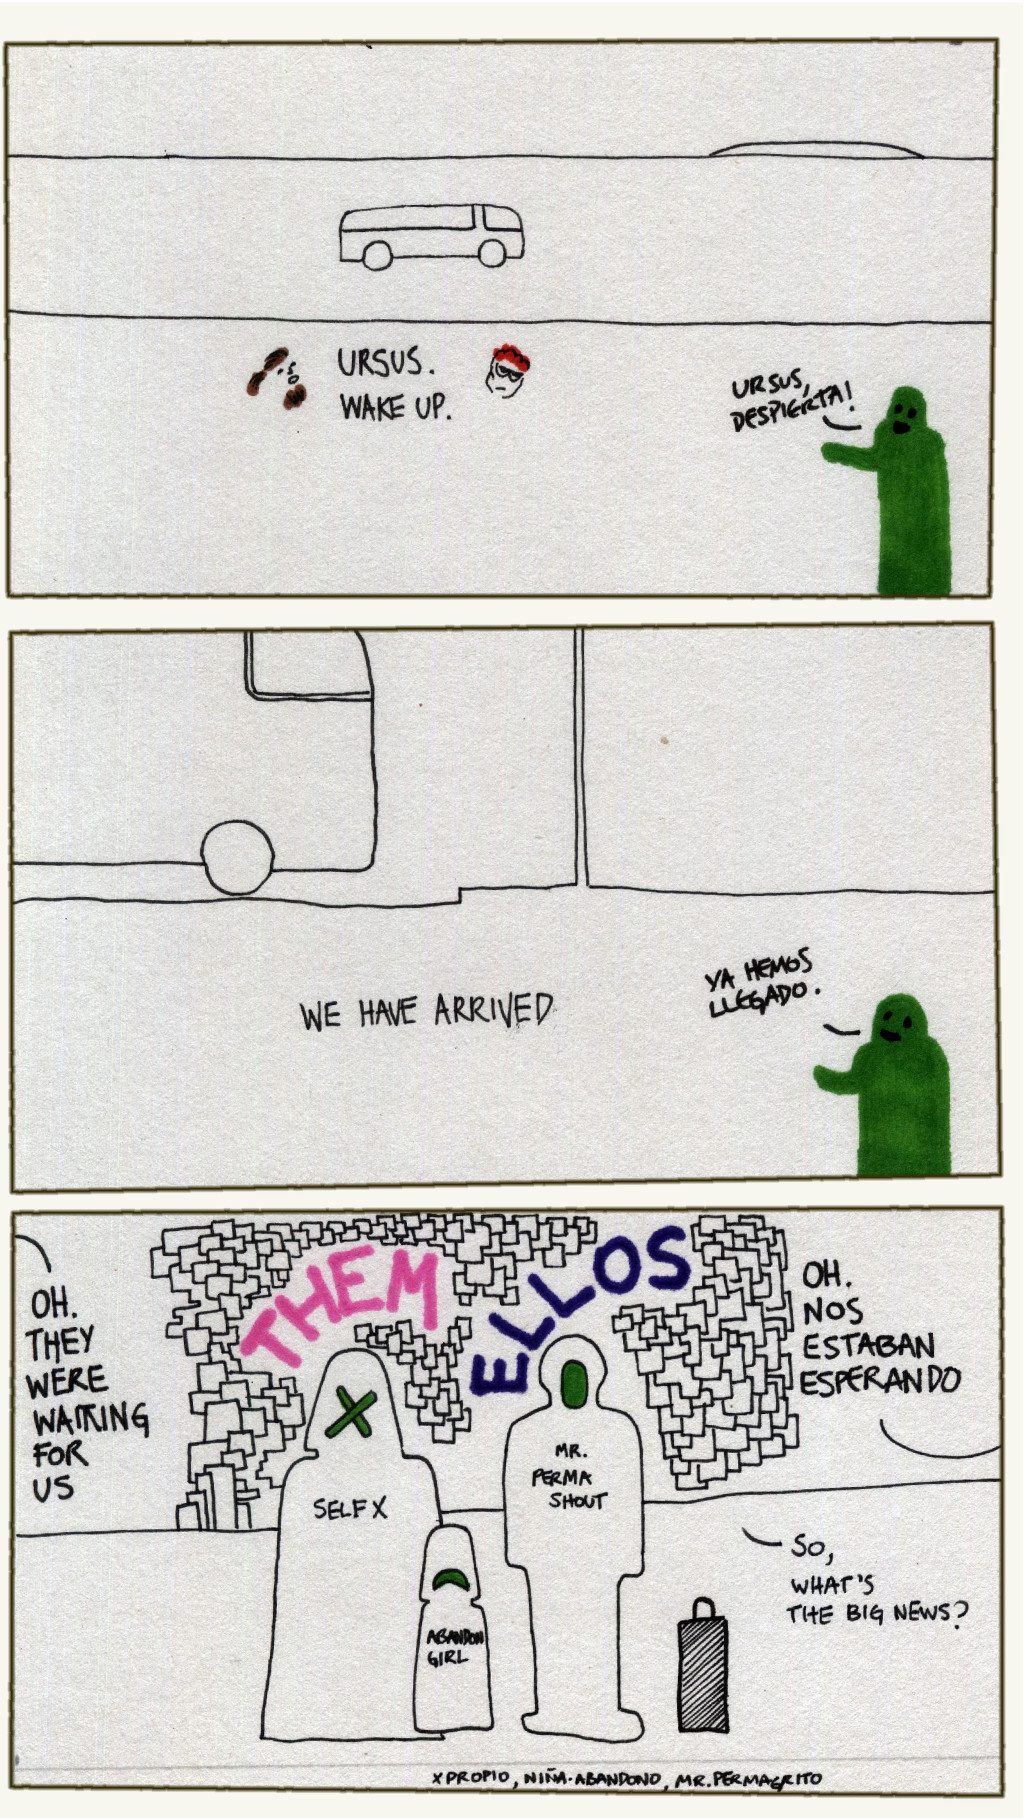 URSUS.
WAKE UP.
URSUS,
DESPIERTA!
WE HAVE ARRIVED
YA HEMOS
LLEGADO.
OH.
THEY
WERE
WAITING
FOR
US
THEM
ELLOS
OH.
NOS
ESTABAN
ESPERANDO
SELF X
ABANDON
GIRL
MR.
PERMA
SHOUT
SO,
WHAT'S
THE BIG NEWS?
X PROPIO, NIÑA-ABANDONO, MR. PERMAGRITO